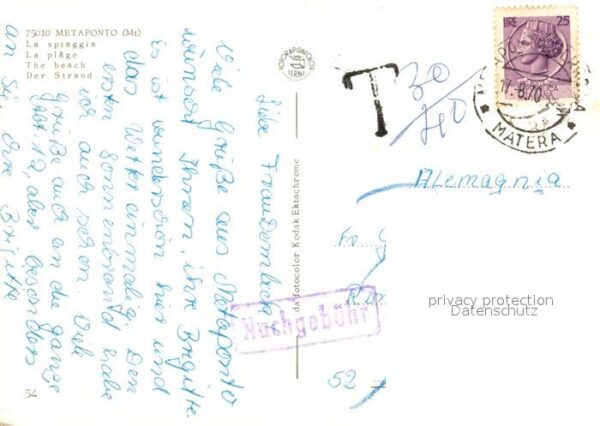 75010 METAPONTO (Mt)
La spiaggia
La plâge
The beach
Der Strand
Liebe Frau Dombeck
Viele Grüße aus Metaponto
wünscht Ihnen, ihre Brigitte.
Es ist wunderschön hier und
das Wetter einmalig. Den
ersten Sonnenbrand habe
ich auch schon. Viele
Grüße auch an die ganze
Abt 12, aber besonders
an Sie, Ihre Brigitte
54
da fotocolor Kodak Ektachrome
T
30
/40
LIRE 25
17.8.70
MATERA
Alemagnia
Nachgebühr
52
privacy protection
Datenschutz